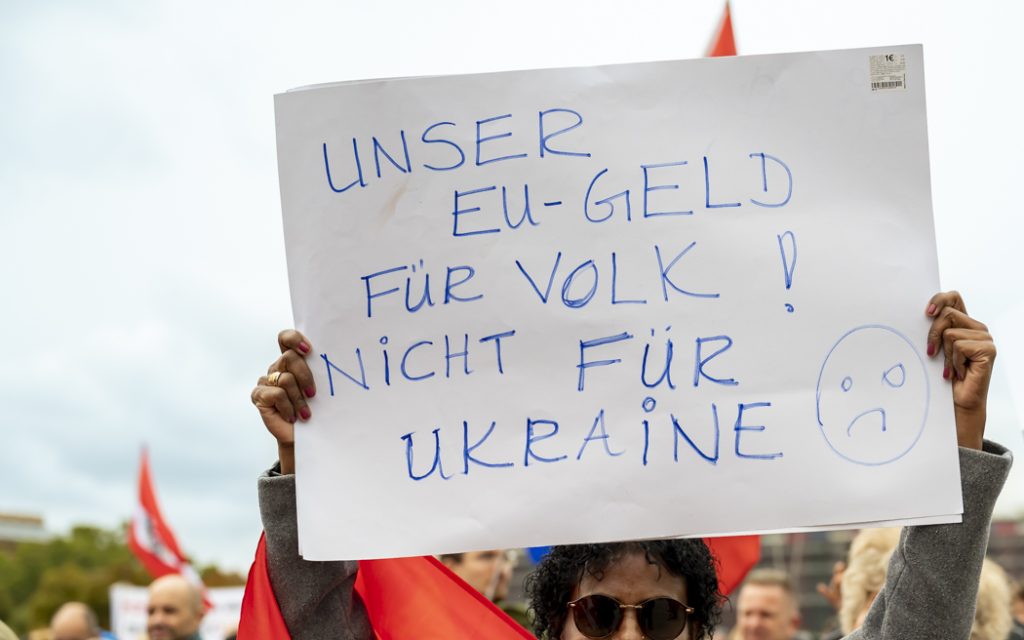 1€
UNSER
EU-GELD
FÜR VOLK !
NICHT FÜR
UKRAiNE